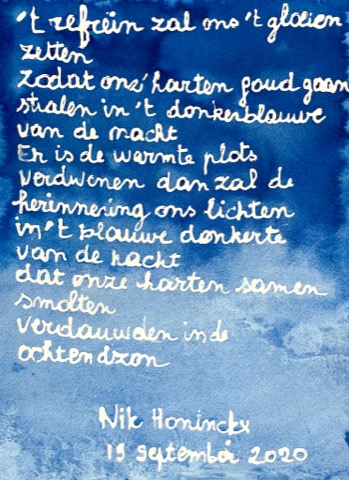 't refrein zal ons 't gloeien
zetten
zodat onz' harten goud gaan
stralen in 't donkerblauwe
van de nacht
En is de warmte plots
verdwenen dan zal de
herinnering ons lichten
in 't blauwe donkerte
van de nacht
dat onze harten samen
smolten
verdauwden in de
ochtendzon
Nik Honinckx
19 september 2020